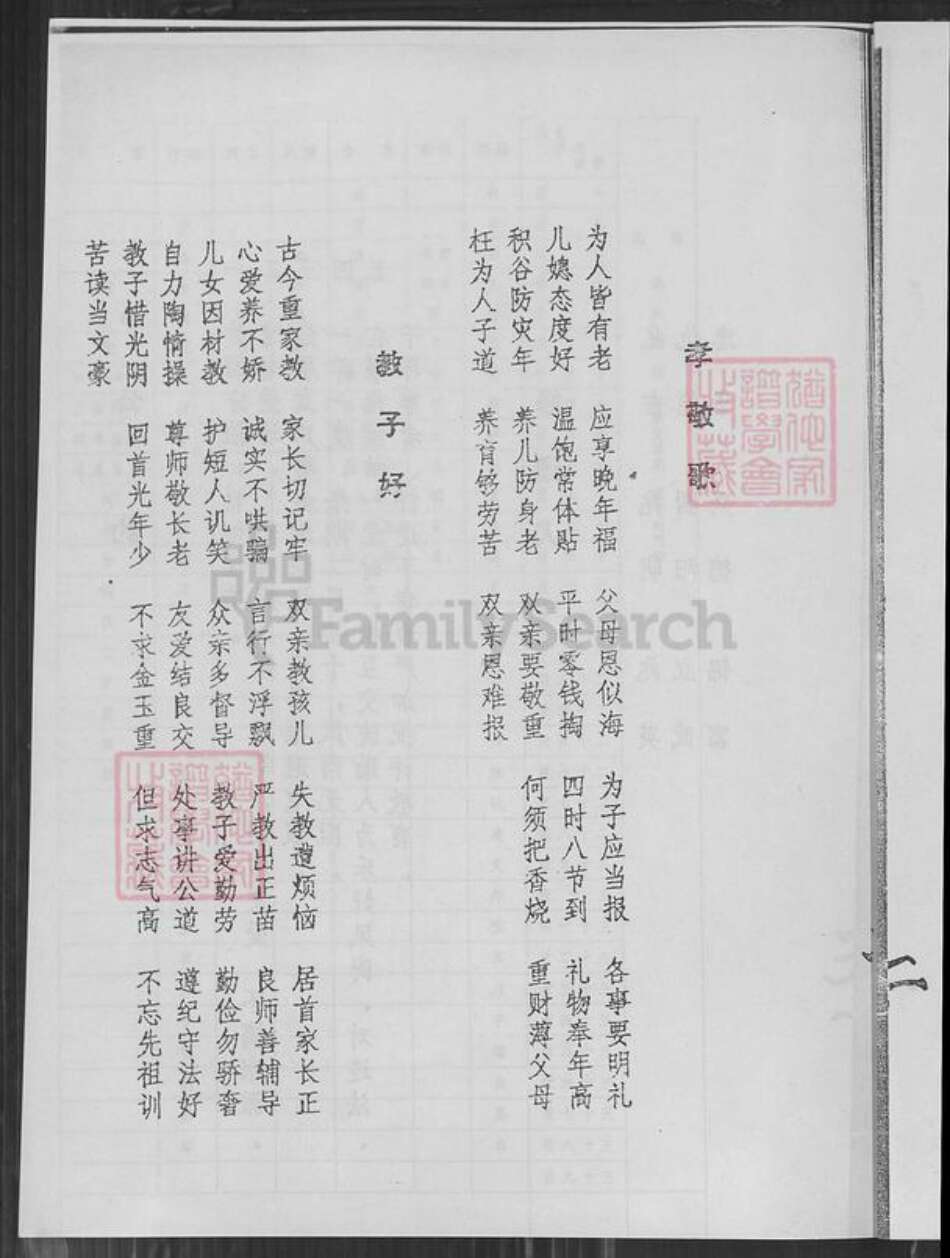 孝敬歌
为人皆有老 应享晚年福 父母恩似海 为子应当报 各事要明礼
儿媳态度好 温饱常体贴 平时零钱掏 四时八节到 礼物奉年高
积谷防灾年 养儿防身老 双亲要敬重 何须把香烧 重财薄父母
枉为人子道 养育够劳苦 双亲恩难报
教子好
古今重家教 家长切记牢 双亲教孩儿 失教遭烦恼 居首家长正
心爱养不娇 诚实不哄骗 言行不浮飘 严教出正苗 良师善辅导
儿女因材教 护短人讥笑 众亲多督导 教子爱勤劳 勤俭勿骄奢
自力陶情操 尊师敬长老 友爱结良交 处事讲公道 遵纪守法好
教子惜光阴 回首光年少 不求金玉重 但求志气高 不忘先祖训
苦读当文豪
二
FamilySearch